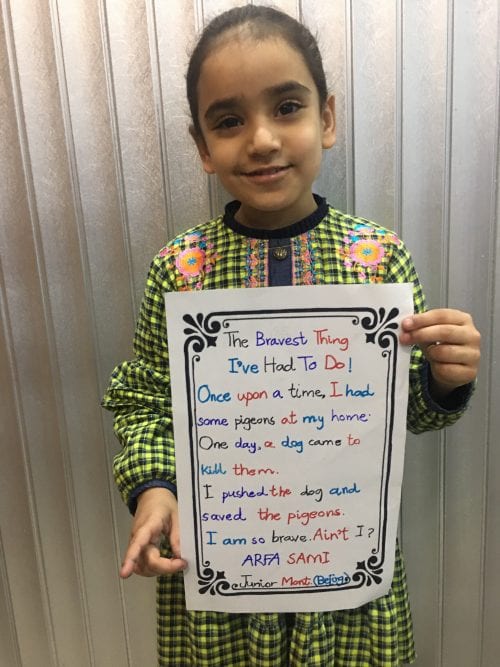 The Bravest Thing
I've Had To Do!
Once upon a time, I had
some pigeons at my home.
One day, a dog came to
kill them.
I pushed the dog and
saved the pigeons.
I am so brave. Ain't I?
ARFA SAMI
Junior Mont. (Beige)